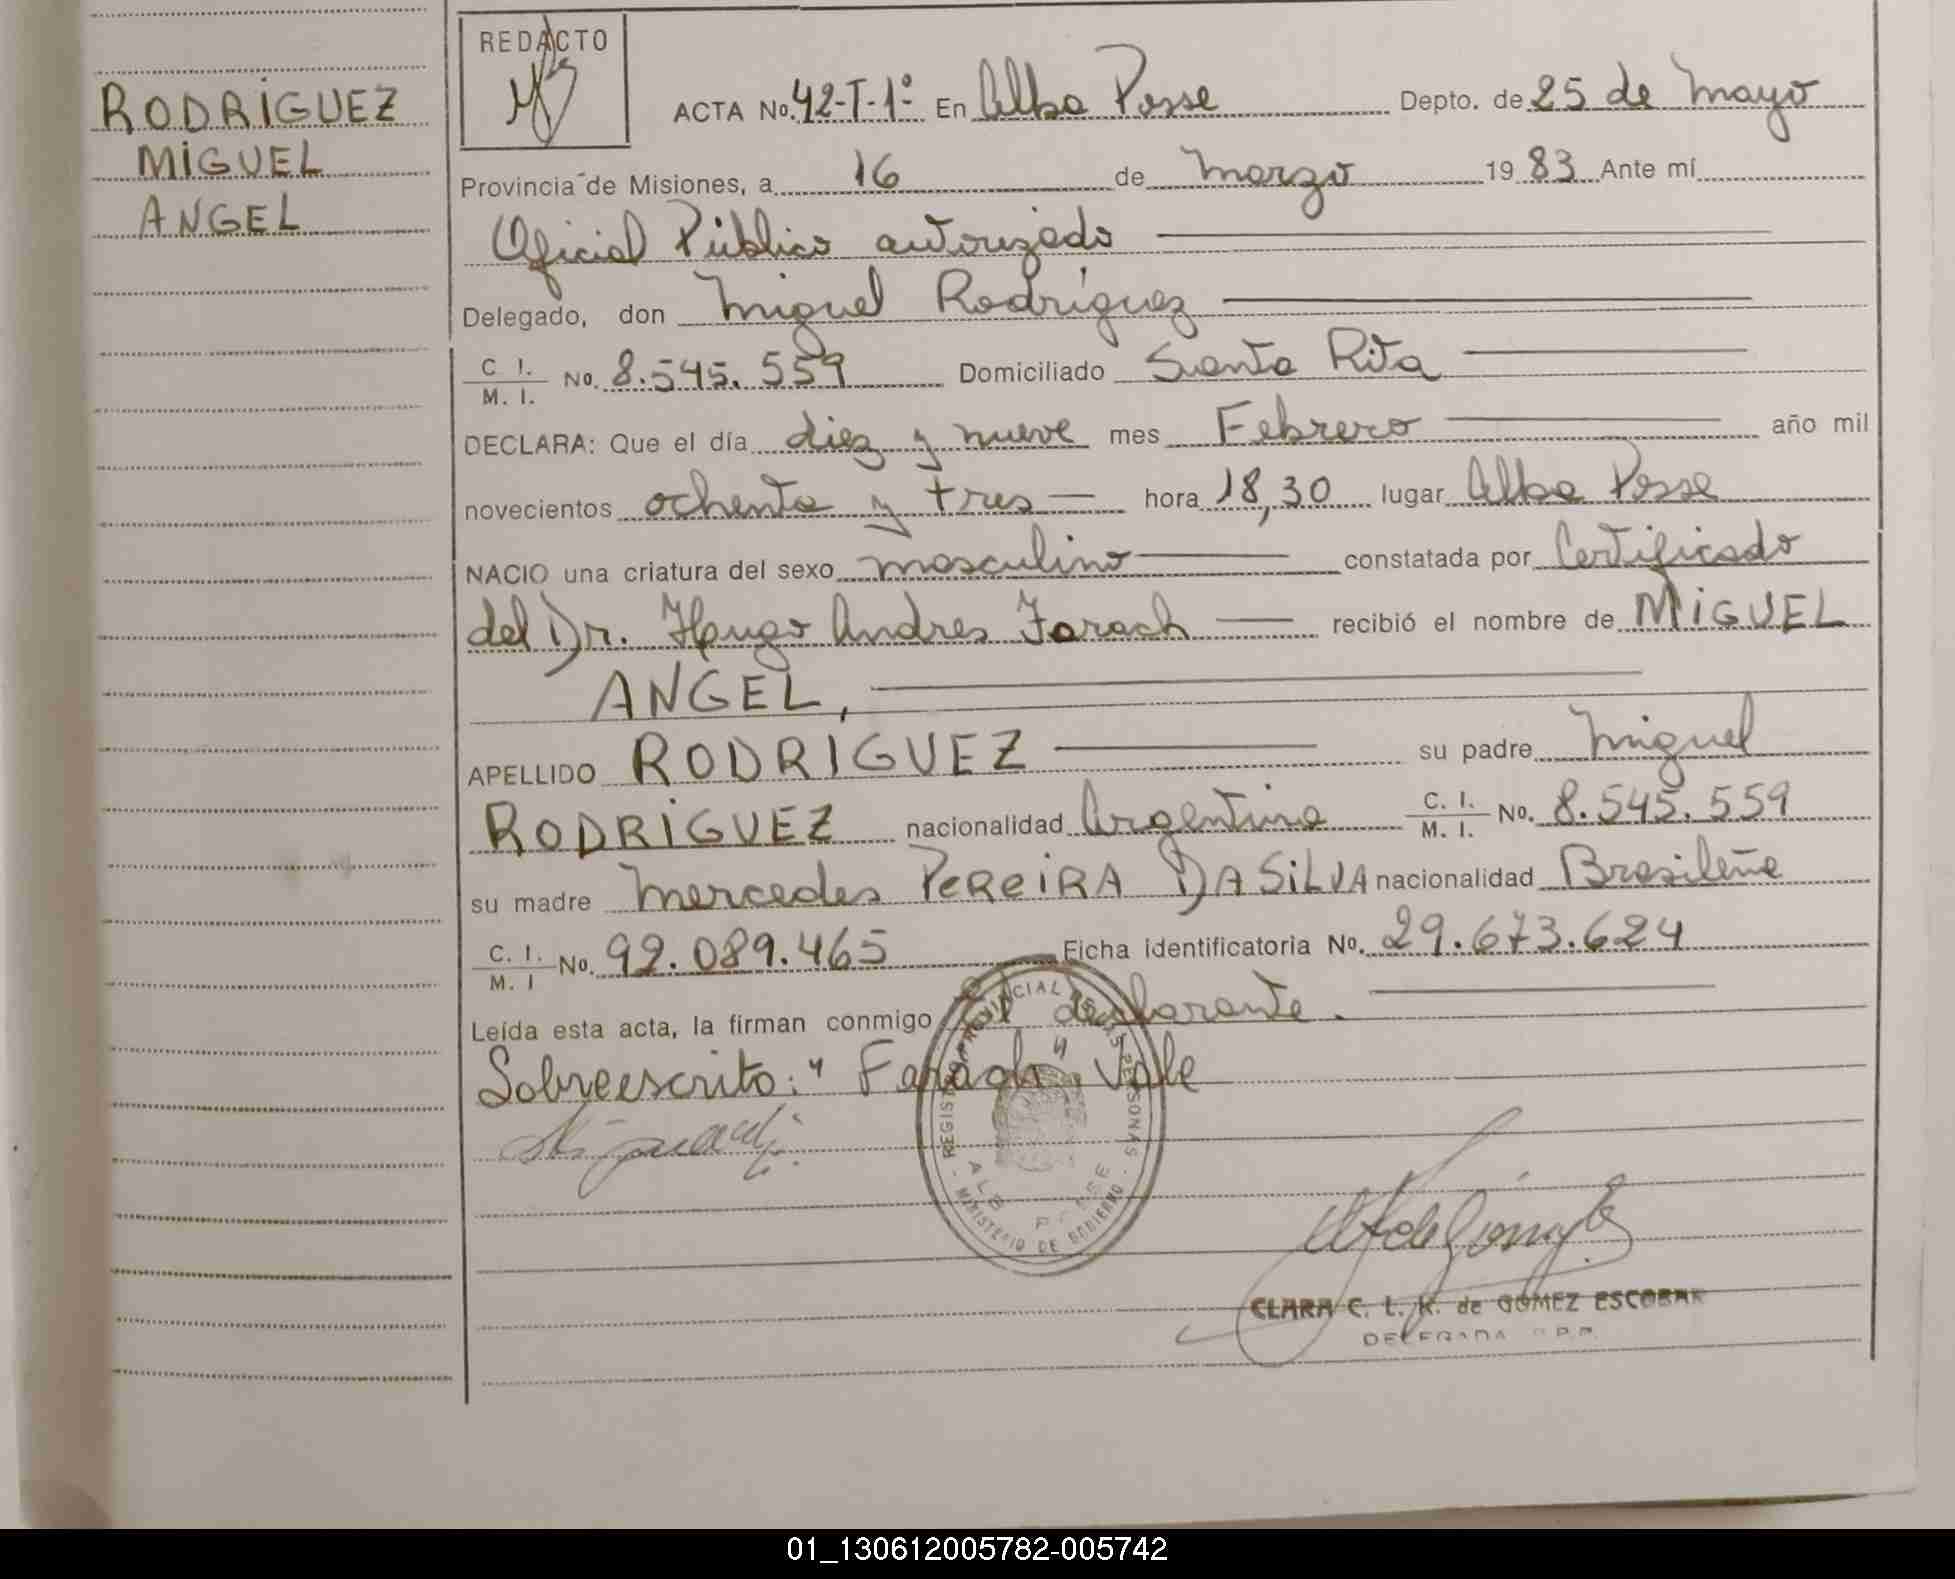 RODRIGUEZ
MIGUEL
ANGEL
REDACTO
ACTA No. 42-T-1º En Alba Posse Depto. de 25 de Mayo
Provincia de Misiones, a 16 de Marzo 19 83 Ante mí
Oficial Público autorizado
Delegado, don Miguel Rodríguez
C I. M. I. No. 8.545.559 Domiciliado Santa Rita
DECLARA: Que el día diez y nueve mes Febrero año mil
novecientos ochenta y tres hora 18,30 lugar Alba Posse
NACIO una criatura del sexo masculino constatada por Certificado
del Dr. Hugo Andres Farach recibió el nombre de MIGUEL
ANGEL,
APELLIDO RODRIGUEZ su padre Miguel
RODRIGUEZ nacionalidad Argentina C. I. M. I. No. 8.545.559
su madre Mercedes PEREIRA DA SILVA nacionalidad Brasileña
C. I. M. I No. 92.089.465 Ficha identificatoria No. 29.673.624
Leída esta acta, la firman conmigo el declarante.
Sobreescrito: "Farach" Vale
REGISTRO PROVINCIAL DE LAS PERSONAS
ALBA POSSE
MINISTERIO DE GOBIERNO
CLARA C. L. K. de GOMEZ ESCOBAR
DELEGADA R.P.P.
01_130612005782-005742